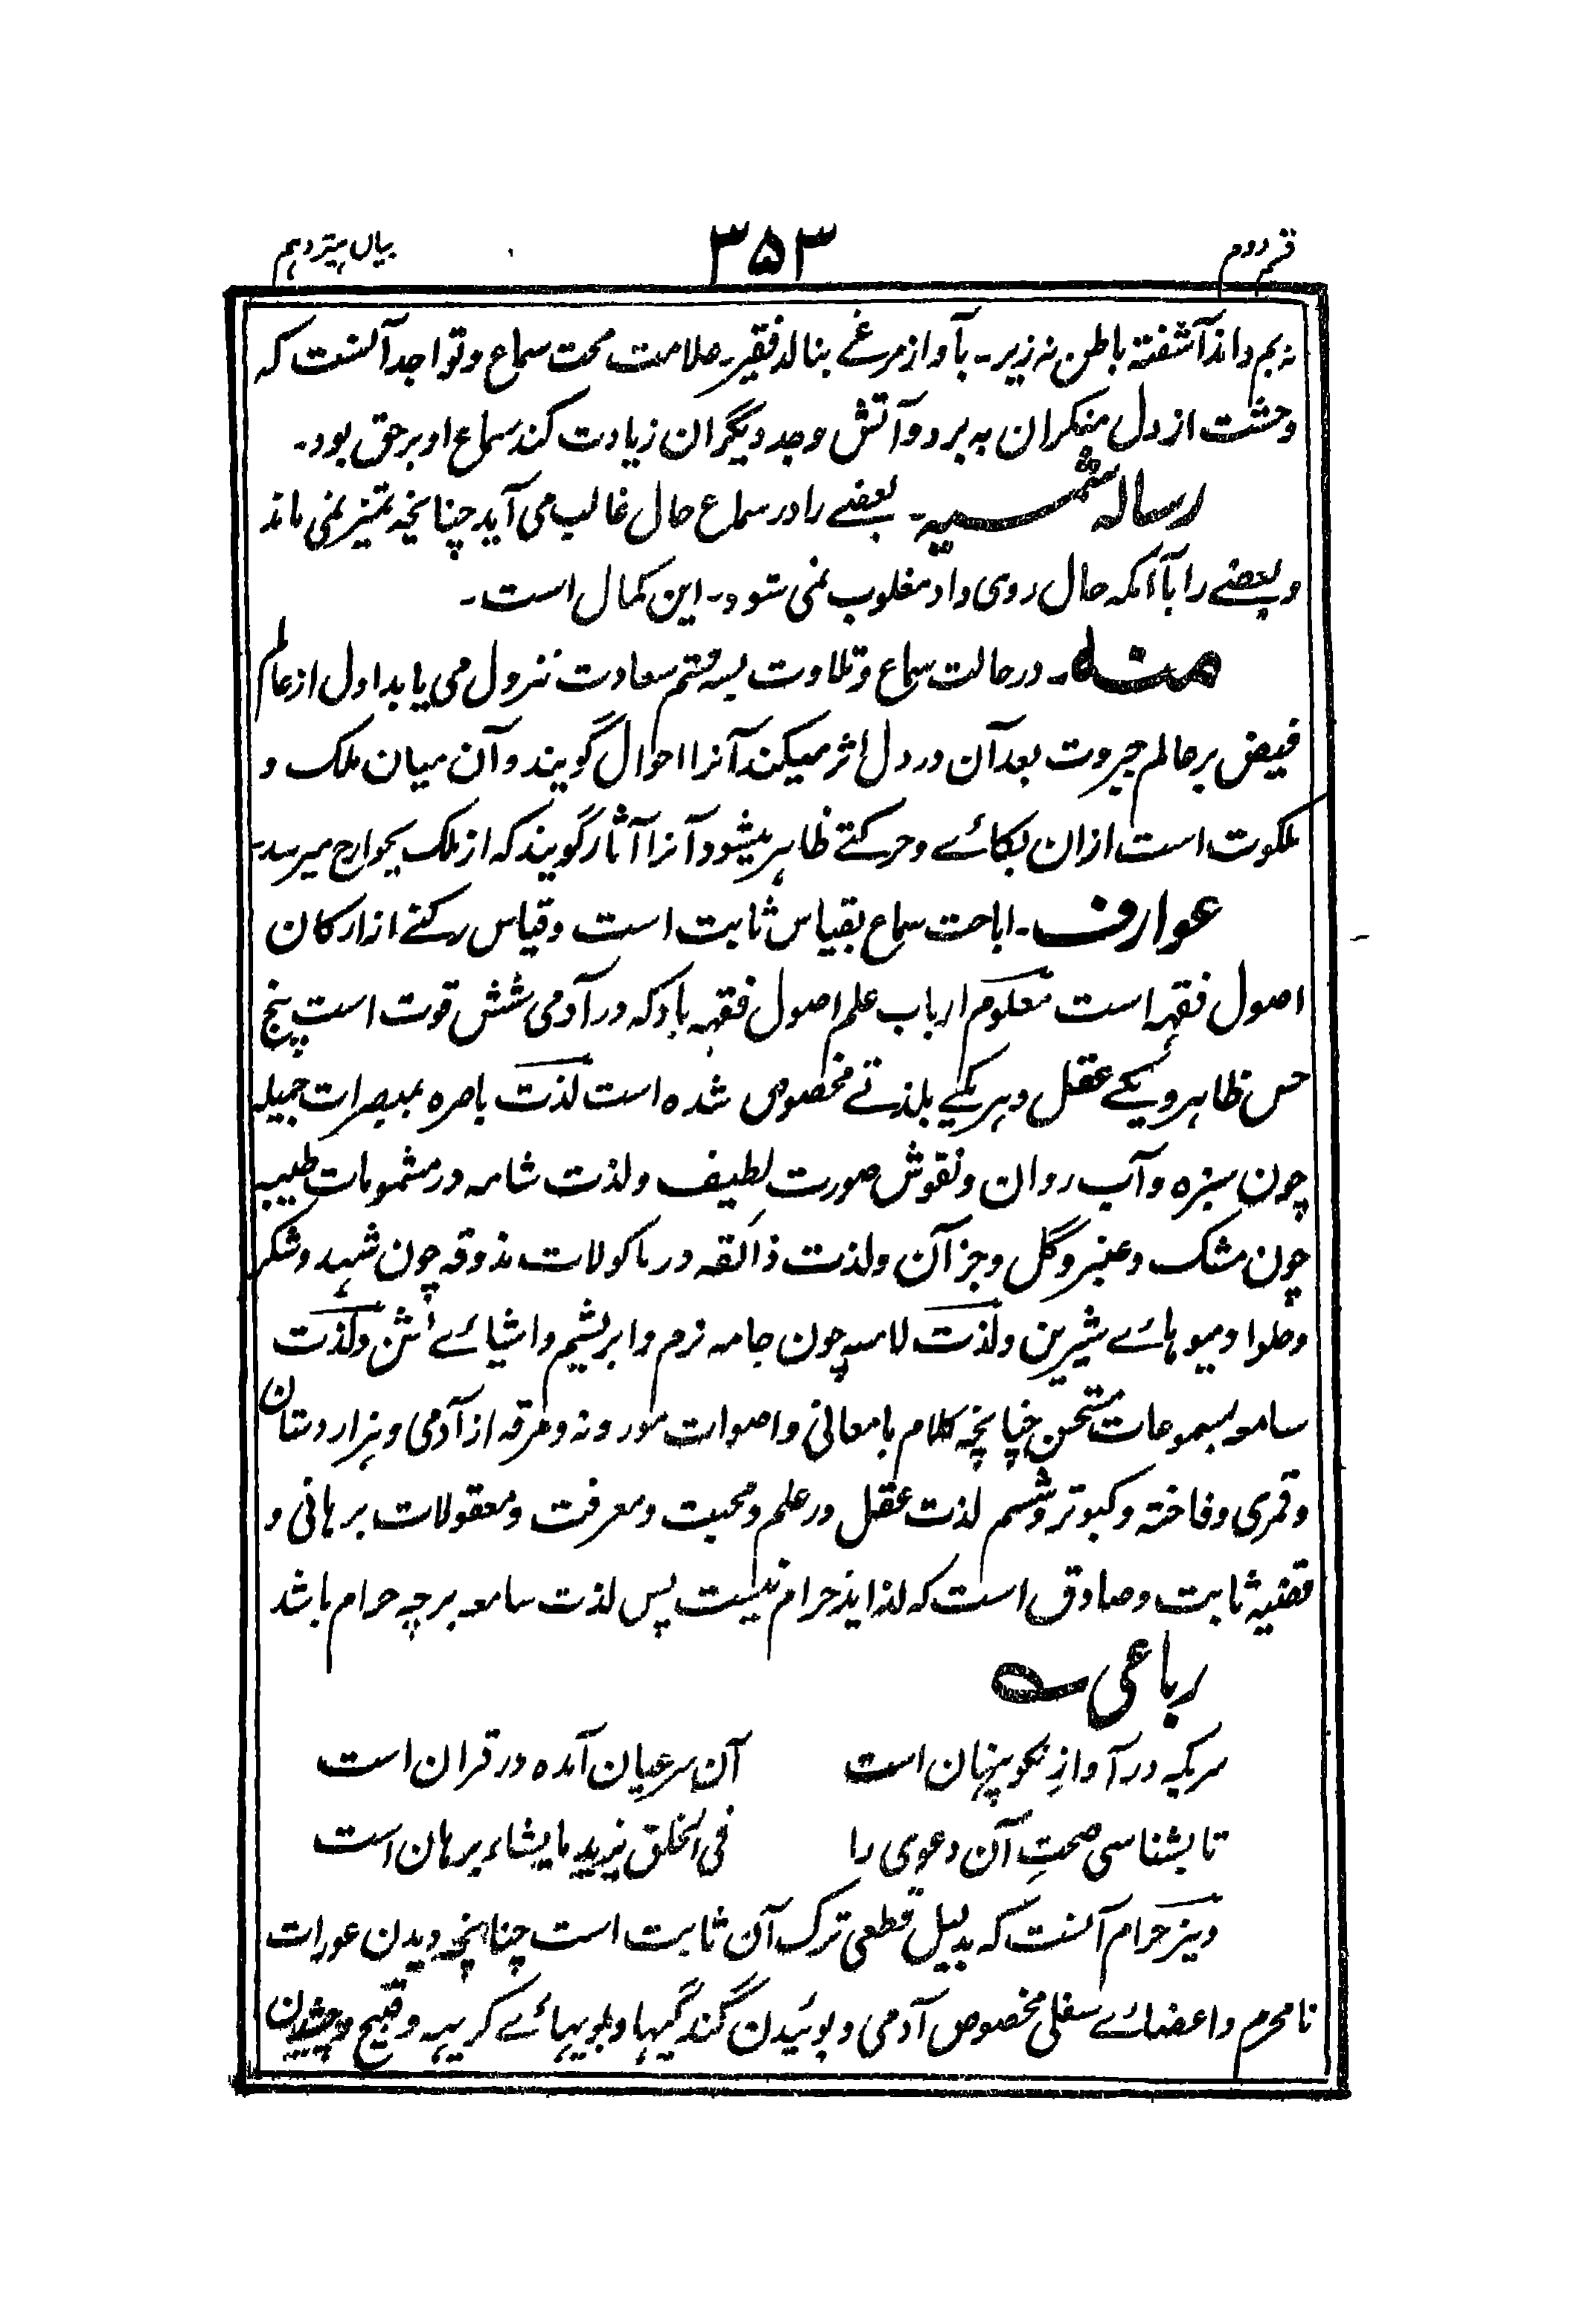 قسم دوم ۳۵۳ بیان ہیزدہم
نہ بم داند آشفتہ باطن نہ زیر۔ بآواز مرغے بنالد فقیر۔ علامت صحت سماع و تواجد آنست کہ
وحشت از دل منکران بہ برد و آتش وجد دیگران زیادت کند سماع او بر حق بود۔
رسالہ شمسیہ۔ بعضے را در سماع حال غالب می آید چنانچہ تمیز نمی ماند
و بعضے را با آنکہ حال روی داد مغلوب نمی شود۔ این کمال است۔
منہ۔ در حالت سماع و تلاوت بسہ قسم سعادت نزول می یابد اول از عالم
فیض بر عالم جبروت بعد آن در دل اثر میکند آنرا احوال گویند و آن میان ملک و
ملکوت است ازان بکائے و حرکتے ظاہر میشود آنرا آثار گویند کہ از ملک بجوارح میرسد۔
عوارف۔ اباحت سماع بقیاس ثابت است وقیاس رکنے از ارکان
اصول فقہ است معلوم ارباب علم اصول فقہ باد کہ در آدمی شش قوت است پنج
حس ظاہر و یکے عقل و ہر یکے بلذتے مخصوص شدہ است لذت باصرہ بمبصرات جمیلہ
چون سبزہ و آب روان و نقوش صورت لطیف و لذت شامہ در مشمومات طیبہ
چون مشک و عنبر و گل و جز آن و لذت ذائقہ در ماکولات مذوقہ چون شہد و شکر
و حلوا و میوہائے شیرین و لذت لامسہ چون جامہ نرم و ابریشم و اشیائے و لذت
سامعہ بمسموعات مستحسن چنانچہ کلام با معانی و اصوات موزونہ و مرقہ از آدمی و ہزار دستان
و قمری و فاختہ و کبوتر و ششم لذت عقل در علم و محبت و معرفت و معقولات برہانی و
قضیہ ثابت و صادق است کہ لذایذ حرام نیست پس لذت سامعہ برچہ حرام باشد
رباعی
سریکہ در آوازِ نکو پنہان است آن سر عیان آمدہ در قران است
تا بشناسی صحتِ آن دعوی را فی الخلق یزید ما یشاء برہان است
و نیز حرام آنست کہ بدلیل قطعی ترک آن ثابت است چنانچہ دیدن عورات
نامحرم و اعضائے سفلی مخصوص آدمی و بوئیدن گندگیہا و بویہائے کریہہ و قبیح و چشیدن